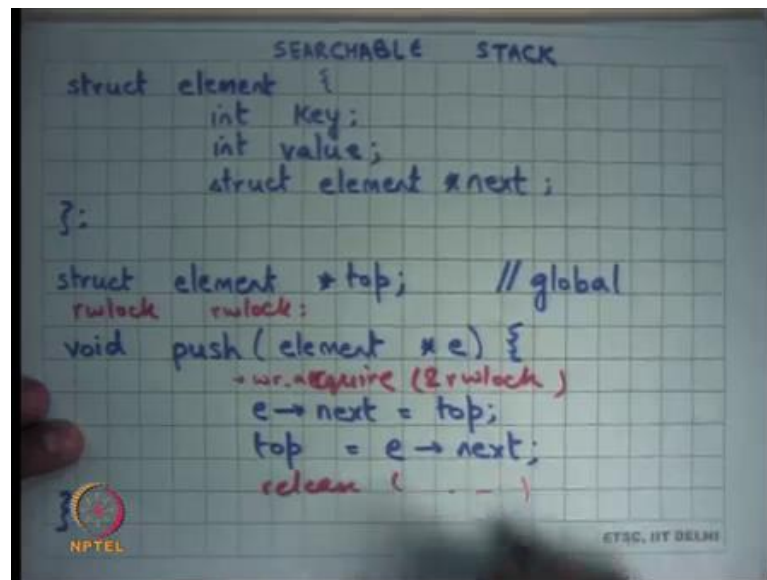 SEARCHABLE STACK
struct element {
int key;
int value;
struct element *next;
};
struct element *top; // global
rwlock rwlock;
void push(element *e) {
wr.acquire(&rwlock)
e→next = top;
top = e→next;
release ( . _ )
}
NPTEL
ETSC, IIT DELHI